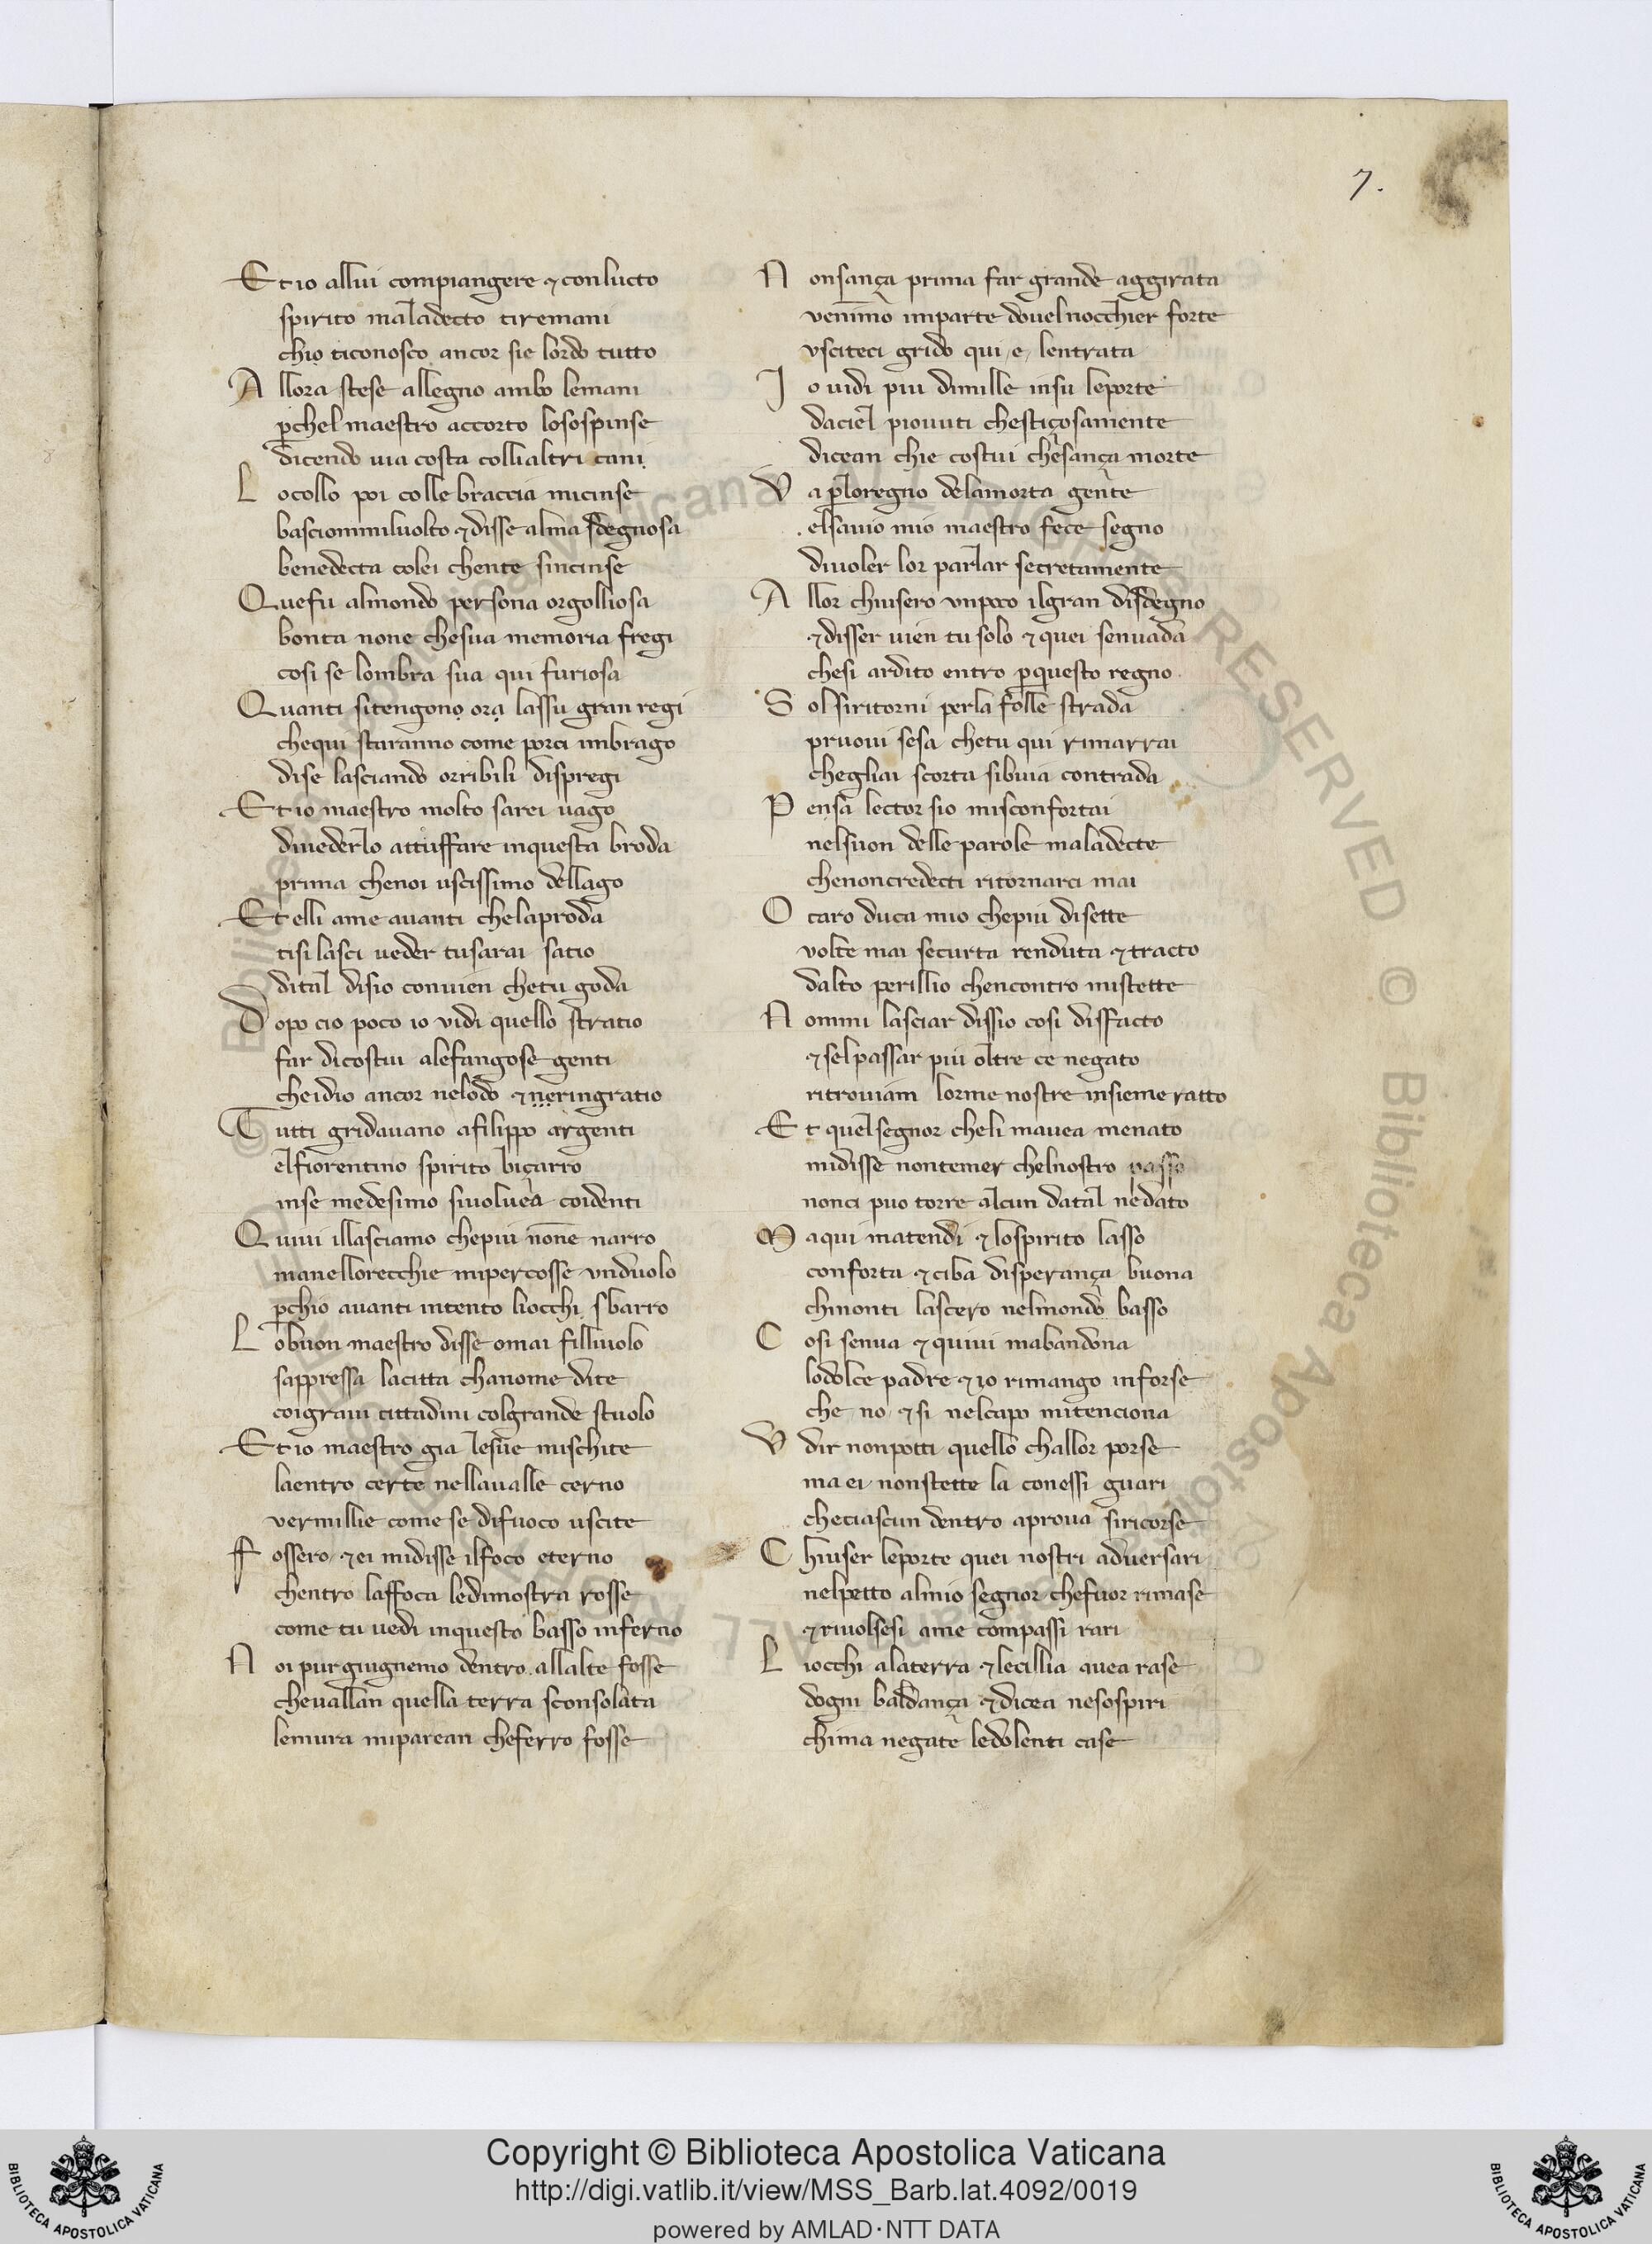 7.
Et io allui compiangere & conlucto
spirito maladecto tiremani
chio ticonosco ancor sie lordo tutto
Allora stese allegno ambo lemani
p̱chel maestro accorto losospinse
dicendo uia costa collialtri cani
Locollo poi colle braccia micinse
basciommiluolto & disse alma sdegnosa
benedecta colei chente sincinse
Quefu almondo persona orgolliosa
bonta none chesua memoria fregi
cosi se lombra sua qui furiosa
Quanti sitengono ora lassu gran regi
chequi staranno come porci imbrago
dise lasciando orribili dispregi
Et io maestro molto sarei uago
diuederlo attuffare inquesta broda
prima chenoi uscissimo dellago
Et elli ame auanti chelaproda
tisi lasci ueder tusarai satio
dital disio conuien chetu goda
Dopo cio poco io vidi quello stratio
far dicostui alefangose genti
cheidio ancor nelodo & neringratio
Tutti gridauano afilippo argenti
elfiorentino spirito biçarro
inse medesimo siuoluea coidenti
Quiui illasciamo chepiu none narro
manellorecchie mipercosse unduolo
p̱chio auanti intento liocchi sbarro
Lobuon maestro disse omai filliuolo
sappressa lacitta chanome dite
coigraui cittadini colgrande stuolo
Et io maestro gia lesue mischite
laentro certe nellaualle cerno
vermillie come se difuoco uscite
Fossero & ei midisse ilfoco eterno
chentro laffoca ledimostra rosse
come tu uedi inquesto basso inferno
Noi pur giugnemo dentro allalte fosse
cheuallan quella terra sconsolata
lemura miparean cheferro fosse
Nonsança prima far grande aggirata
venimo imparte douelnocchier forte
vsciteci grido qui e lentrata
Io uidi piu dimille insu leporte
daciel piouuti chestiçosamente
dicean chie costui chesança morte
Va p̱loregno delamorta gente
elsauio mio maestro fece segno
diuoler lor parlar secretamente
Allor chiusero vnpoco ilgran disdegno
& disser uien tu solo & quei senuada
chesi ardito entro p̱questo regno
Solsiritorni perla folle strada
pruoui sesa chetu qui rimarrai
chegliai scorta sibuia contrada
Pensa lector sio misconfortai
nelsuon delle parole maladecte
chenoncredecti ritornarci mai
O caro duca mio chepiu disette
volte mai securta renduta & tracto
dalto perillio chencontro mistette
Nommi lasciar dissio cosi disfacto
& selpassar piu oltre ce negato
ritrouiam lorme nostre insieme ratto
Et quelsegnor cheli mauea menato
midisse nontemer chelnostro passo
nonci puo torre alcun datal nedato
Maqui matendi & lospirito lasso
conforta & ciba disperança buona
chinonti lascero nelmondo basso
Cosi senua & quiui mabandona
lodolce padre & io rimango inforse
che no & si nelcapo mitenciona
Vdir nonpotti quello challor porse
ma ei nonstette la conessi guari
checiascun dentro aproua siricorse
Chiuser leporte quei nostri aduersari
nelpetto almio segnor chefuor rimase
& riuolsesi ame compassi rari
Liocchi alaterra & lecillia auea rase
dogni baldança & dicea nesospiri
chima negate ledolenti case
Copyright © Biblioteca Apostolica Vaticana
http://digi.vatlib.it/view/MSS_Barb.lat.4092/0019
powered by AMLAD·NTT DATA
BIBLIOTECA APOSTOLICA VATICANA
BIBLIOTECA APOSTOLICA VATICANA